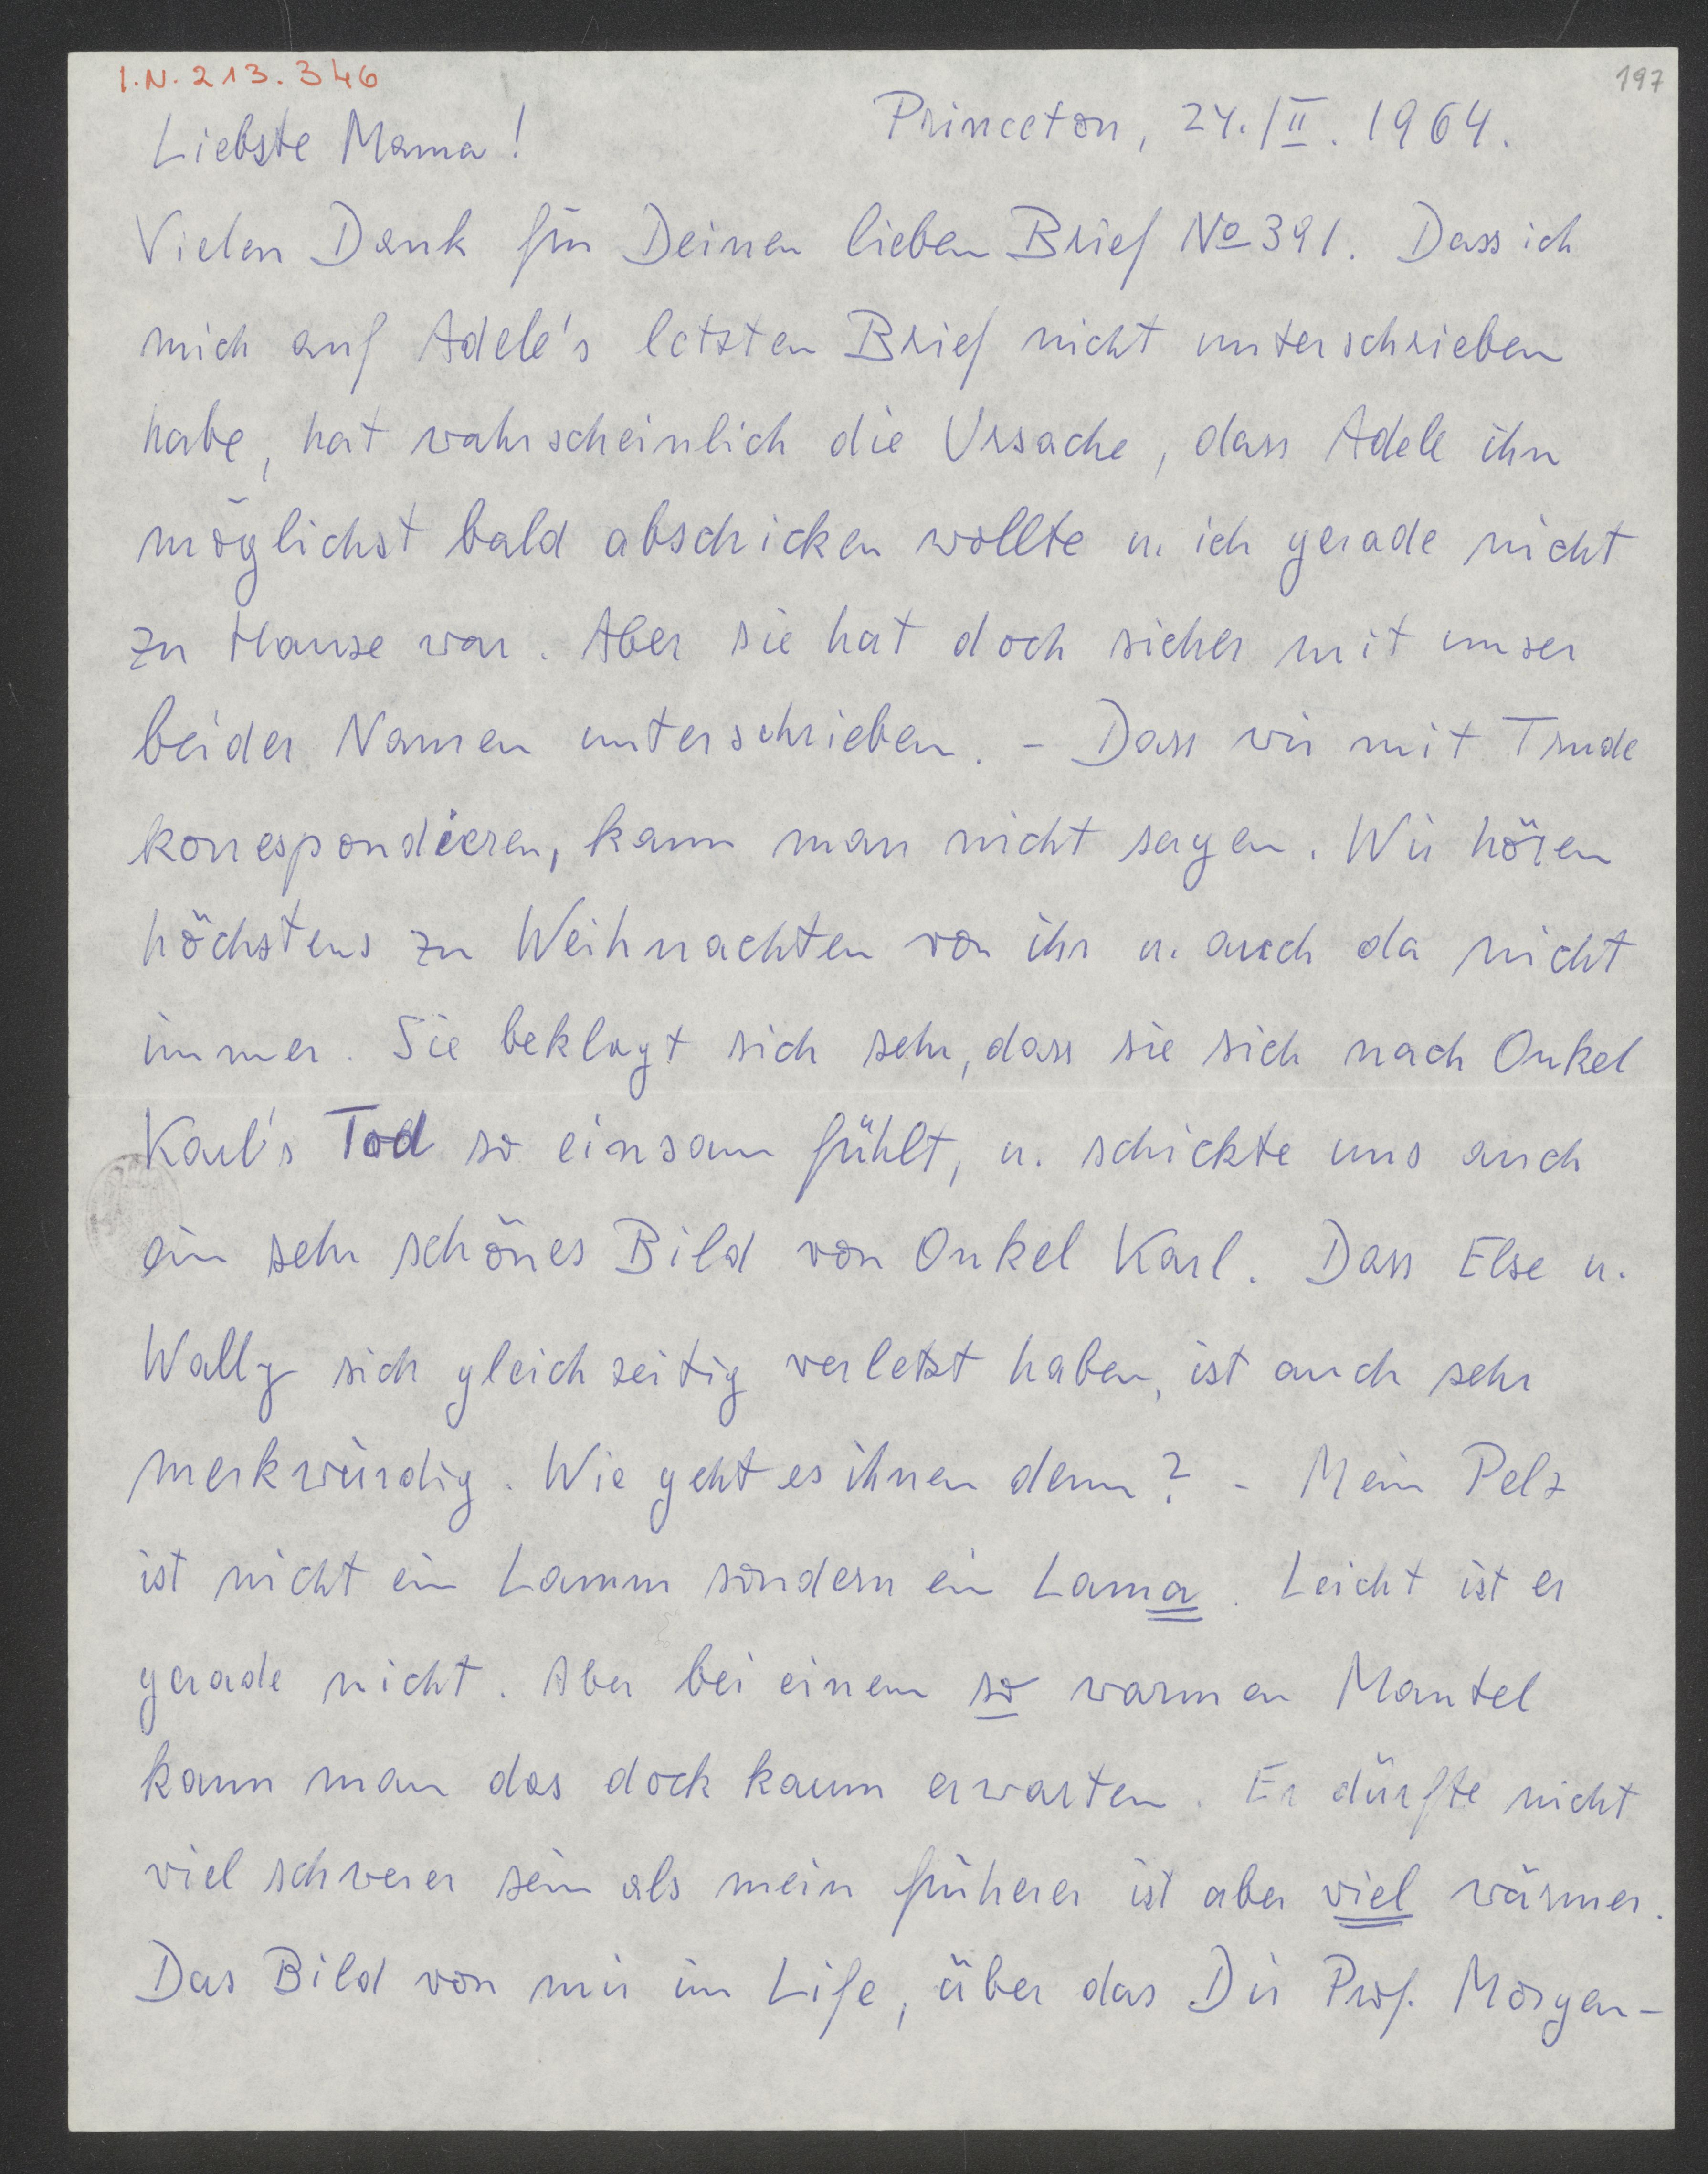 I.N. 213.346
197
Princeton, 24./II. 1964.
Liebste Mama!
Vielen Dank für Deinen lieben Brief No 391. Dass ich
mich auf Adele's letzten Brief nicht unterschrieben
habe, hat wahrscheinlich die Ursache, dass Adele ihn
möglichst bald abschicken wollte u. ich gerade nicht
zu Hause war. Aber sie hat doch sicher mit unser
beider Namen unterschrieben. - Dass wir mit Trude
korrespondieren, kann man nicht sagen. Wir hören
höchstens zu Weihnachten von ihr u. auch da nicht
immer. Sie beklagt sich sehr, dass sie sich nach Onkel
Karl's Tod so einsam fühlt, u. schickte uns auch
ein sehr schönes Bild von Onkel Karl. Dass Else u.
Wally sich gleichzeitig verletzt haben, ist auch sehr
merkwürdig. Wie geht es ihnen denn? - Mein Pelz
ist nicht ein Lamm sondern ein Lama. Leicht ist er
gerade nicht. Aber bei einem so warmen Mantel
kann man das doch kaum erwarten. Er dürfte nicht
viel schwerer sein als mein früherer ist aber viel wärmer.
Das Bild von mir im Life, über das Dir Prof. Morgen-